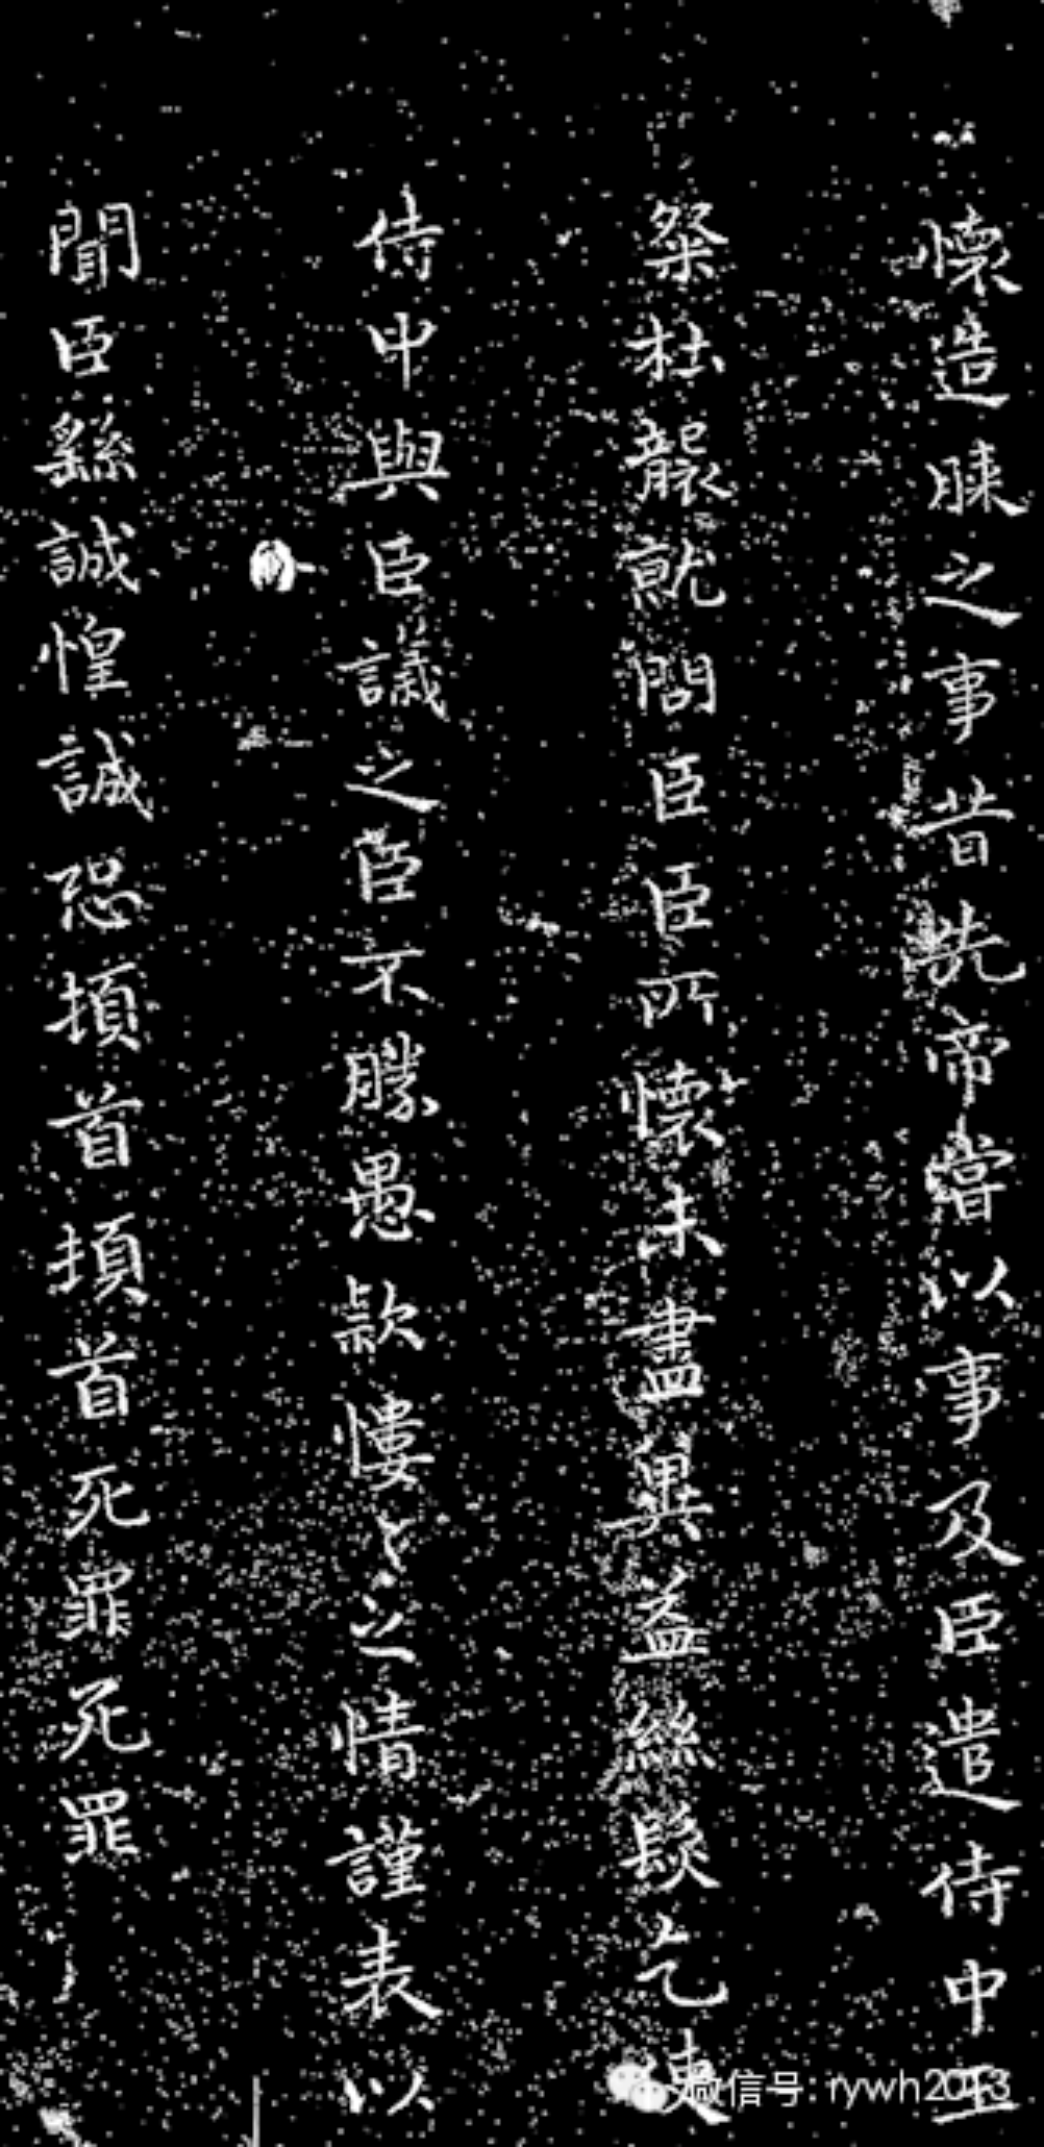 懷造膝之事昔先帝嘗以事及臣遣侍中王
粲杜襲就問臣臣所懷未盡兾益絲髮乞使
侍中與臣議之臣不勝愚款慺〻之情謹表以
聞臣繇誠惶誠恐頓首頓首死罪死罪
微信号: rywh2013